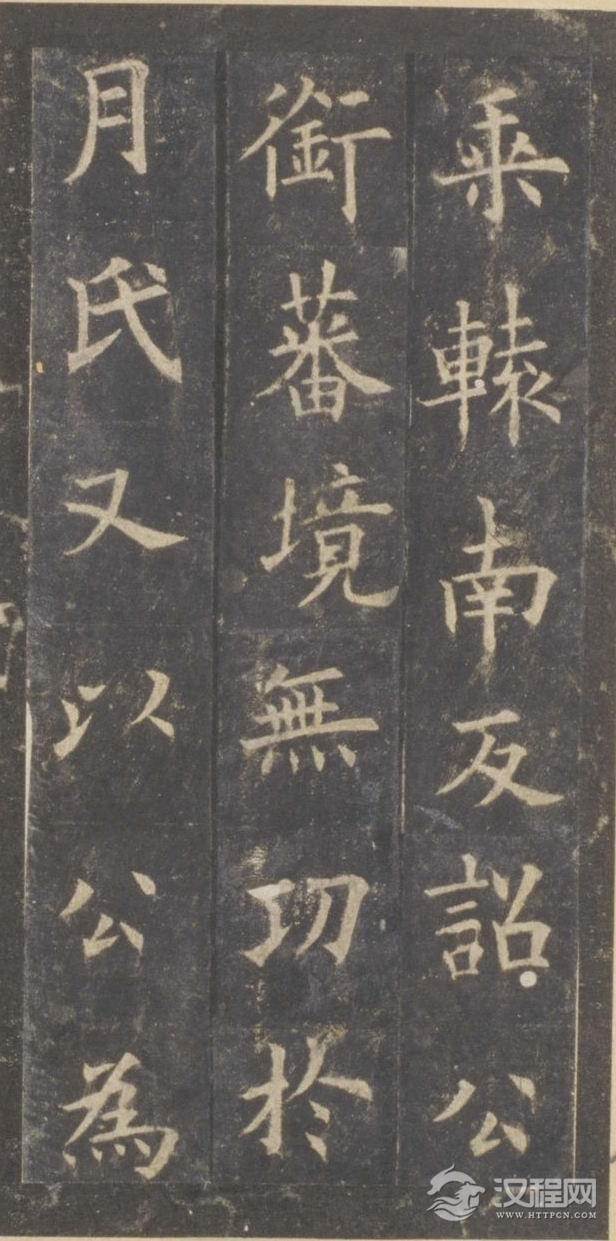 乘轅南反詔公
銜蕃境無功於
月氏又以公為
汉程网
WWW.HTTPCN.COM